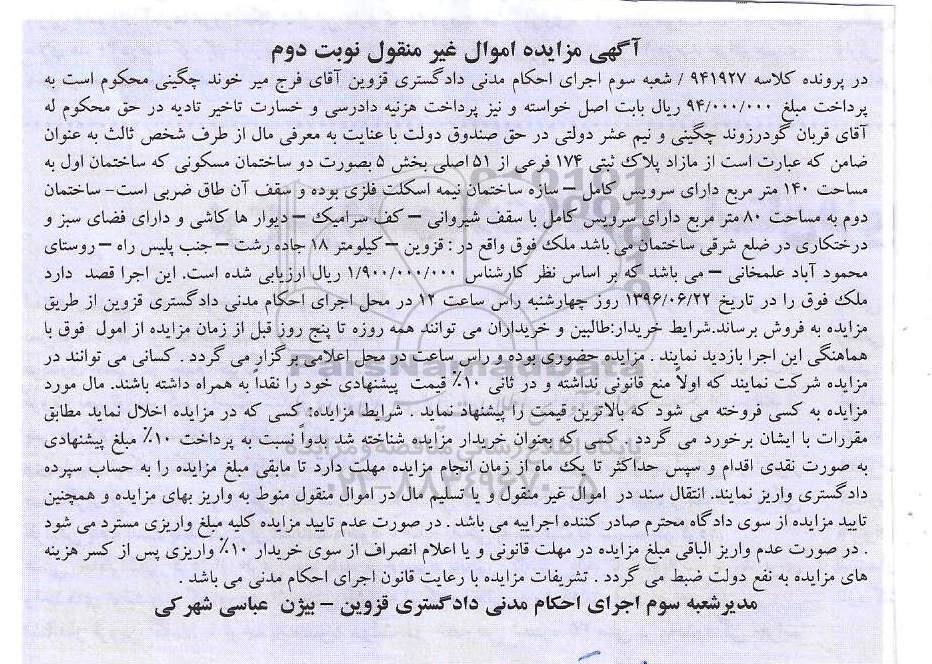 آگهی مزایده اموال غیر منقول نوبت دوم
در پرونده کلاسه ۹۴۱۹۲۷ / شعبه سوم اجرای احکام مدنی دادگستری قزوین آقای فرج میر خوند چگینی محکوم است به
پرداخت مبلغ ۹۴/۰۰۰/۰۰۰ ریال بابت اصل خواسته و نیز پرداخت هزینه دادرسی و خسارت تاخیر تادیه در حق محکوم له
آقای قربان گودرزوند چگینی و نیم عشر دولتی در حق صندوق دولت با عنایت به معرفی مال از طرف شخص ثالث به عنوان
ضامن که عبارت است از مازاد پلاک ثبتی ۱۷۴ فرعی از ۵۱ اصلی بخش ۵ بصورت دو ساختمان مسکونی که ساختمان اول به
مساحت ۱۴۰ متر مربع دارای سرویس کامل – سازه ساختمان نیمه اسکلت فلزی بوده و سقف آن طاق ضربی است- ساختمان
دوم به مساحت ۸۰ متر مربع دارای سرویس کامل با سقف شیروانی – کف سرامیک – دیوار ها کاشی و دارای فضای سبز و
درختکاری در ضلع شرقی ساختمان می باشد ملک فوق واقع در : قزوین – کیلومتر ۱۸ جاده رشت – جنب پلیس راه – روستای
محمود آباد علمخانی – می باشد که بر اساس نظر کارشناس ۱/۹۰۰/۰۰۰/۰۰۰ ریال ارزیابی شده است. این اجرا قصد دارد
ملک فوق را در تاریخ ۱۳۹۶/۰۶/۲۲ روز چهارشنبه راس ساعت ۱۲ در محل اجرای احکام مدنی دادگستری قزوین از طریق
مزایده به فروش برساند.شرایط خریدار:طالبین و خریداران می توانند همه روزه تا پنج روز قبل از زمان مزایده از امول فوق با
هماهنگی این اجرا بازدید نمایند . مزایده حضوری بوده و راس ساعت در محل اعلامی برگزار می گردد . کسانی می توانند در
مزایده شرکت نمایند که اولاً منع قانونی نداشته و در ثانی ۱۰٪ قیمت پیشنهادی خود را نقداً به همراه داشته باشند. مال مورد
مزایده به کسی فروخته می شود که بالاترین قیمت را پیشنهاد نماید . شرایط مزایده: کسی که در مزایده اخلال نماید مطابق
مقررات با ایشان برخورد می گردد . کسی که بعنوان خریدار مزایده شناخته شد بدواً نسبت به پرداخت ۱۰٪ مبلغ پیشنهادی
به صورت نقدی اقدام و سپس حداکثر تا یک ماه از زمان انجام مزایده مهلت دارد تا مابقی مبلغ مزایده را به حساب سپرده
دادگستری واریز نمایند. انتقال سند در اموال غیر منقول و یا تسلیم مال در اموال منقول منوط به واریز بهای مزایده و همچنین
تایید مزایده از سوی دادگاه محترم صادر کننده اجراییه می باشد . در صورت عدم تایید مزایده کلیه مبلغ واریزی مسترد می شود
. در صورت عدم واریز الباقی مبلغ مزایده در مهلت قانونی و یا اعلام انصراف از سوی خریدار ۱۰٪ واریزی پس از کسر هزینه
های مزایده به نفع دولت ضبط می گردد . تشریفات مزایده با رعایت قانون اجرای احکام مدنی می باشد .
مدیرشعبه سوم اجرای احکام مدنی دادگستری قزوین – بیژن عباسی شهرکی
ParsNamadData